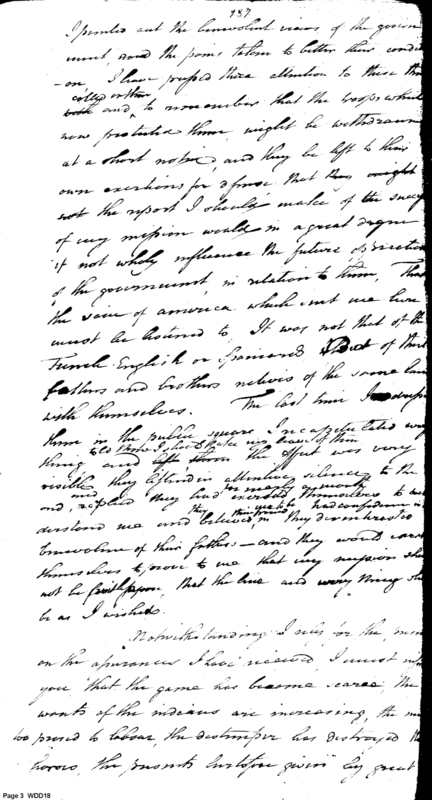 187
I pointed out the benevolent views of the govern
ment, and the pains taken to better their condi
-on, I have pressed there attention to these th
and to remember that the troops which
now protected them, might be withdrawn
at a short notice, and they be left to their
own exertions for defence, that they ought
not the report I should make of the succ
of my mission would in a great degree
if not wholy influence the future direction
of the government, in relation to them, That
the voice of america which sent me here
must be listened to, It was not that of the
French English or Spaniard But of their
fathers and brothers natives of the same lan
with themselves. The last time I
them in the public square I recapitulated every
thing and told them I should take my leave of them
the effect was very
visible they listened in attentive silence to the
end, and replied they had exerted themselves to un
derstand me and believed in
benevolence of their fathers - and they would exert
themselves to prove to me that my mission sh
not be that the line and every thing sh
be as I wished.
Notwithstanding I rely on the
on the apurances I have received I must
you that the game has become scarce, the
wants of the indians are increasing, the m
too proud to labour, the distemper has destroyed th
horses, the presents heretofore given by great
Page 3 WDD18